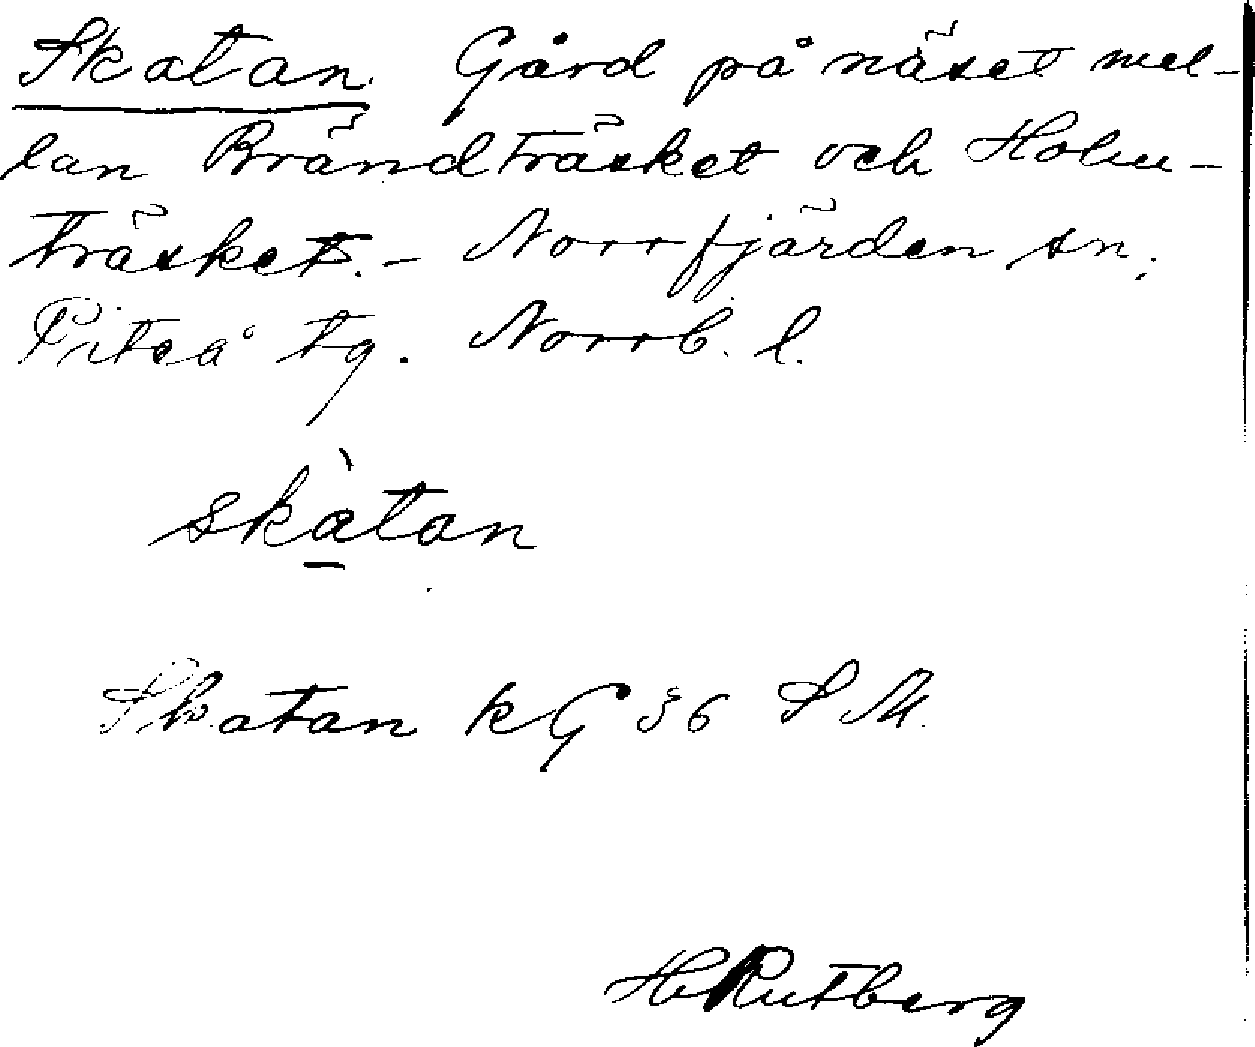 Skatan. Gård på näset mel-
lan Brändträsket och Holm-
träsket. - Norrfjärden sn,
Piteå tg. Norrb. l.
skàtan
Skatan kG 36 S M.
H Rutberg